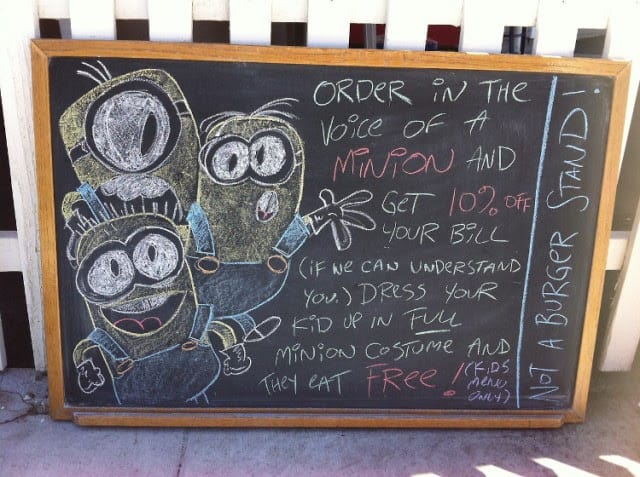 ORDER IN THE
VOICE OF A
MINION AND
GET 10% OFF
YOUR BILL
(IF WE CAN UNDERSTAND
YOU.) DRESS YOUR
KID UP IN FULL
MINION COSTUME AND
THEY EAT FREE! (KIDS
MENU
ONLY)
NOT A BURGER STAND!